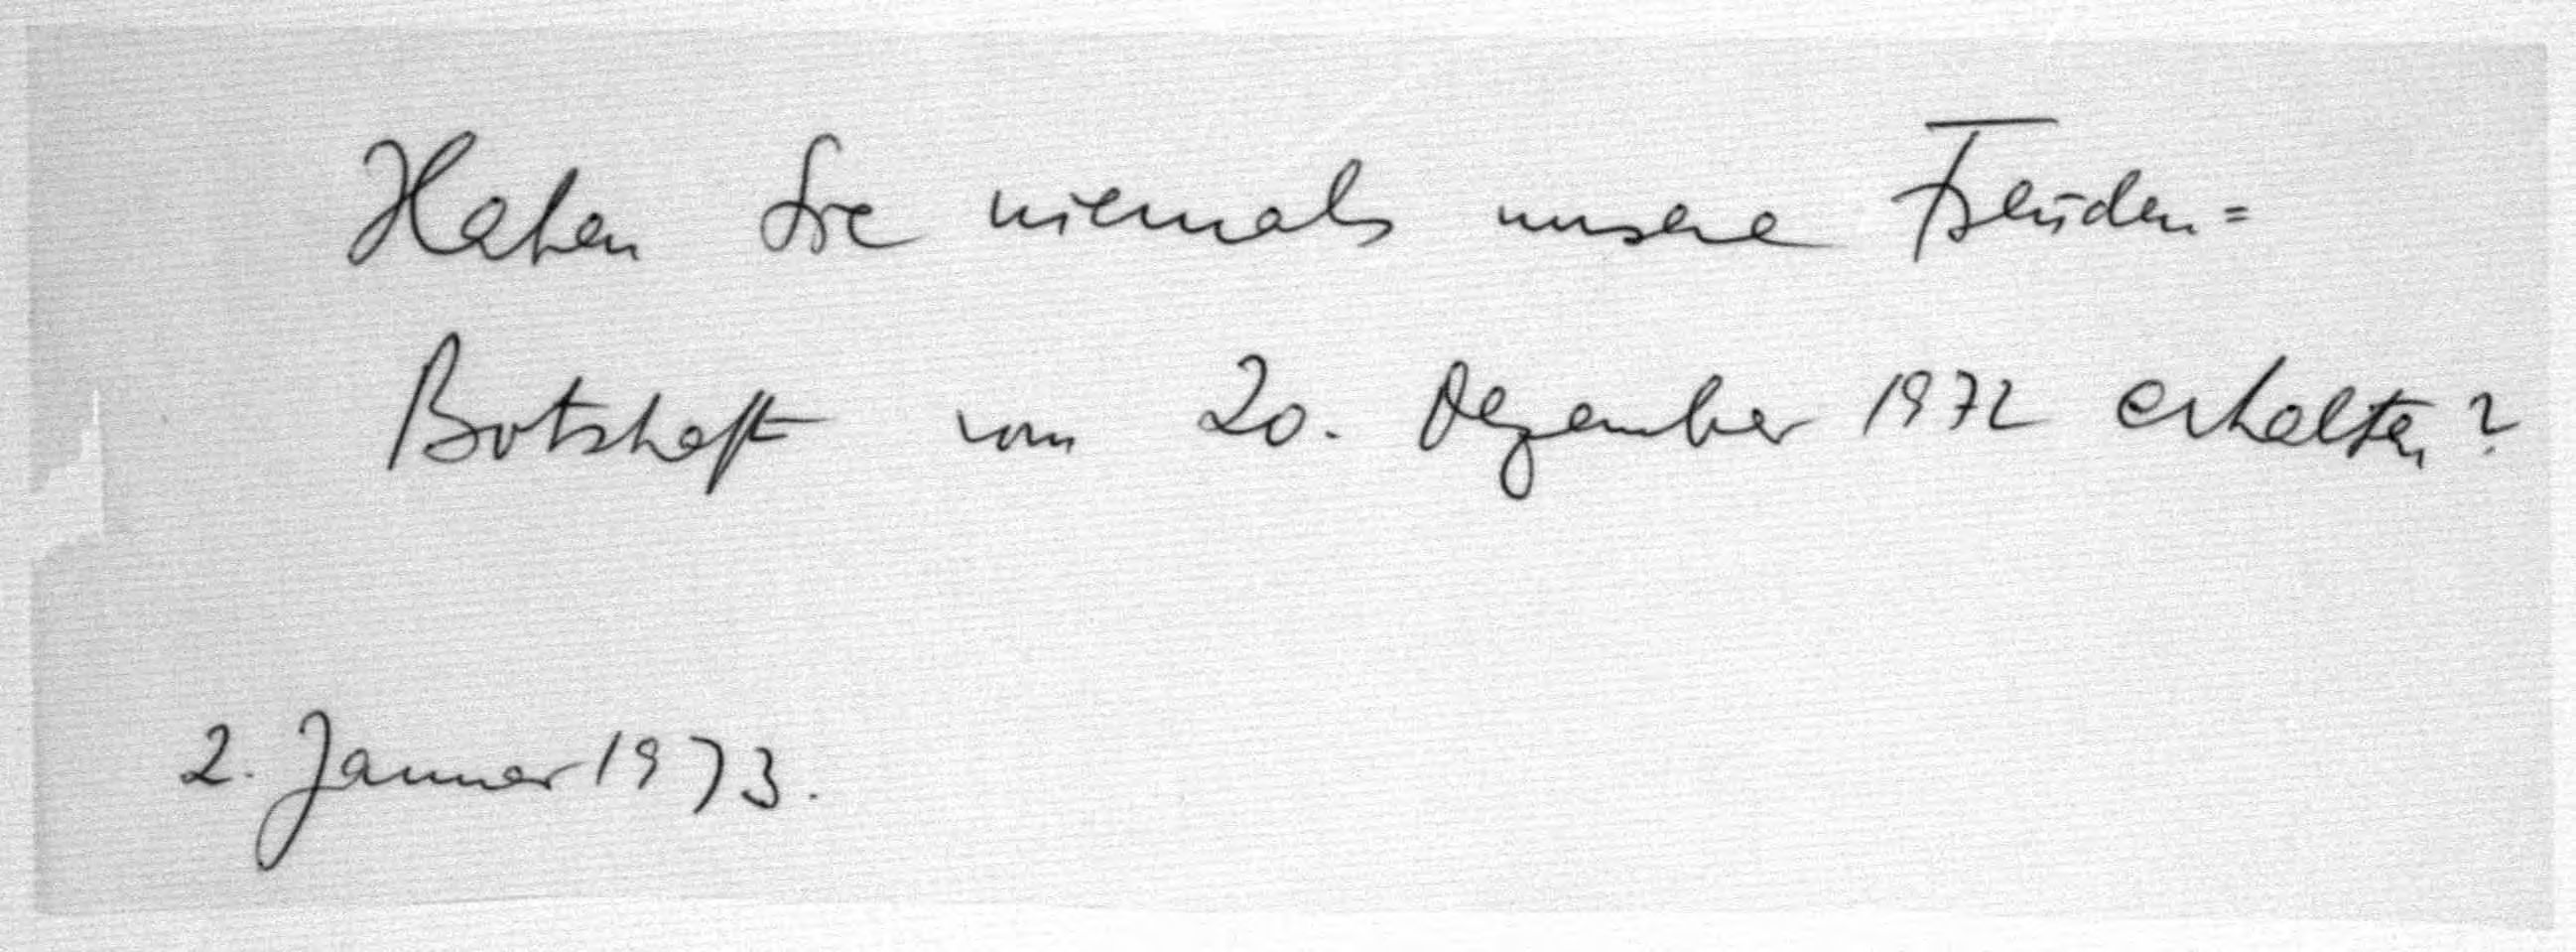 Haben Sie niemals unsere Freuden=
Botschaft vom 20. Dezember 1972 erhalten?
2. Januar 1973.